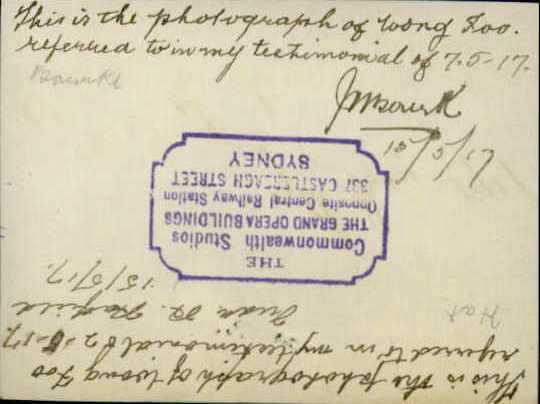 This is the photograph of Wong Foo.
referred to in my testimonial of 7.5-17.
Bourke
15/5/17
THE
Commonwealth Studios
THE GRAND OPERA BUILDINGS
Opposite Central Railway Station
337 CASTLEREAGH STREET
SYDNEY
This is the photograph of Wong Foo
referred to in my testimonial of 2-5-17.
15/5/17.
Hat